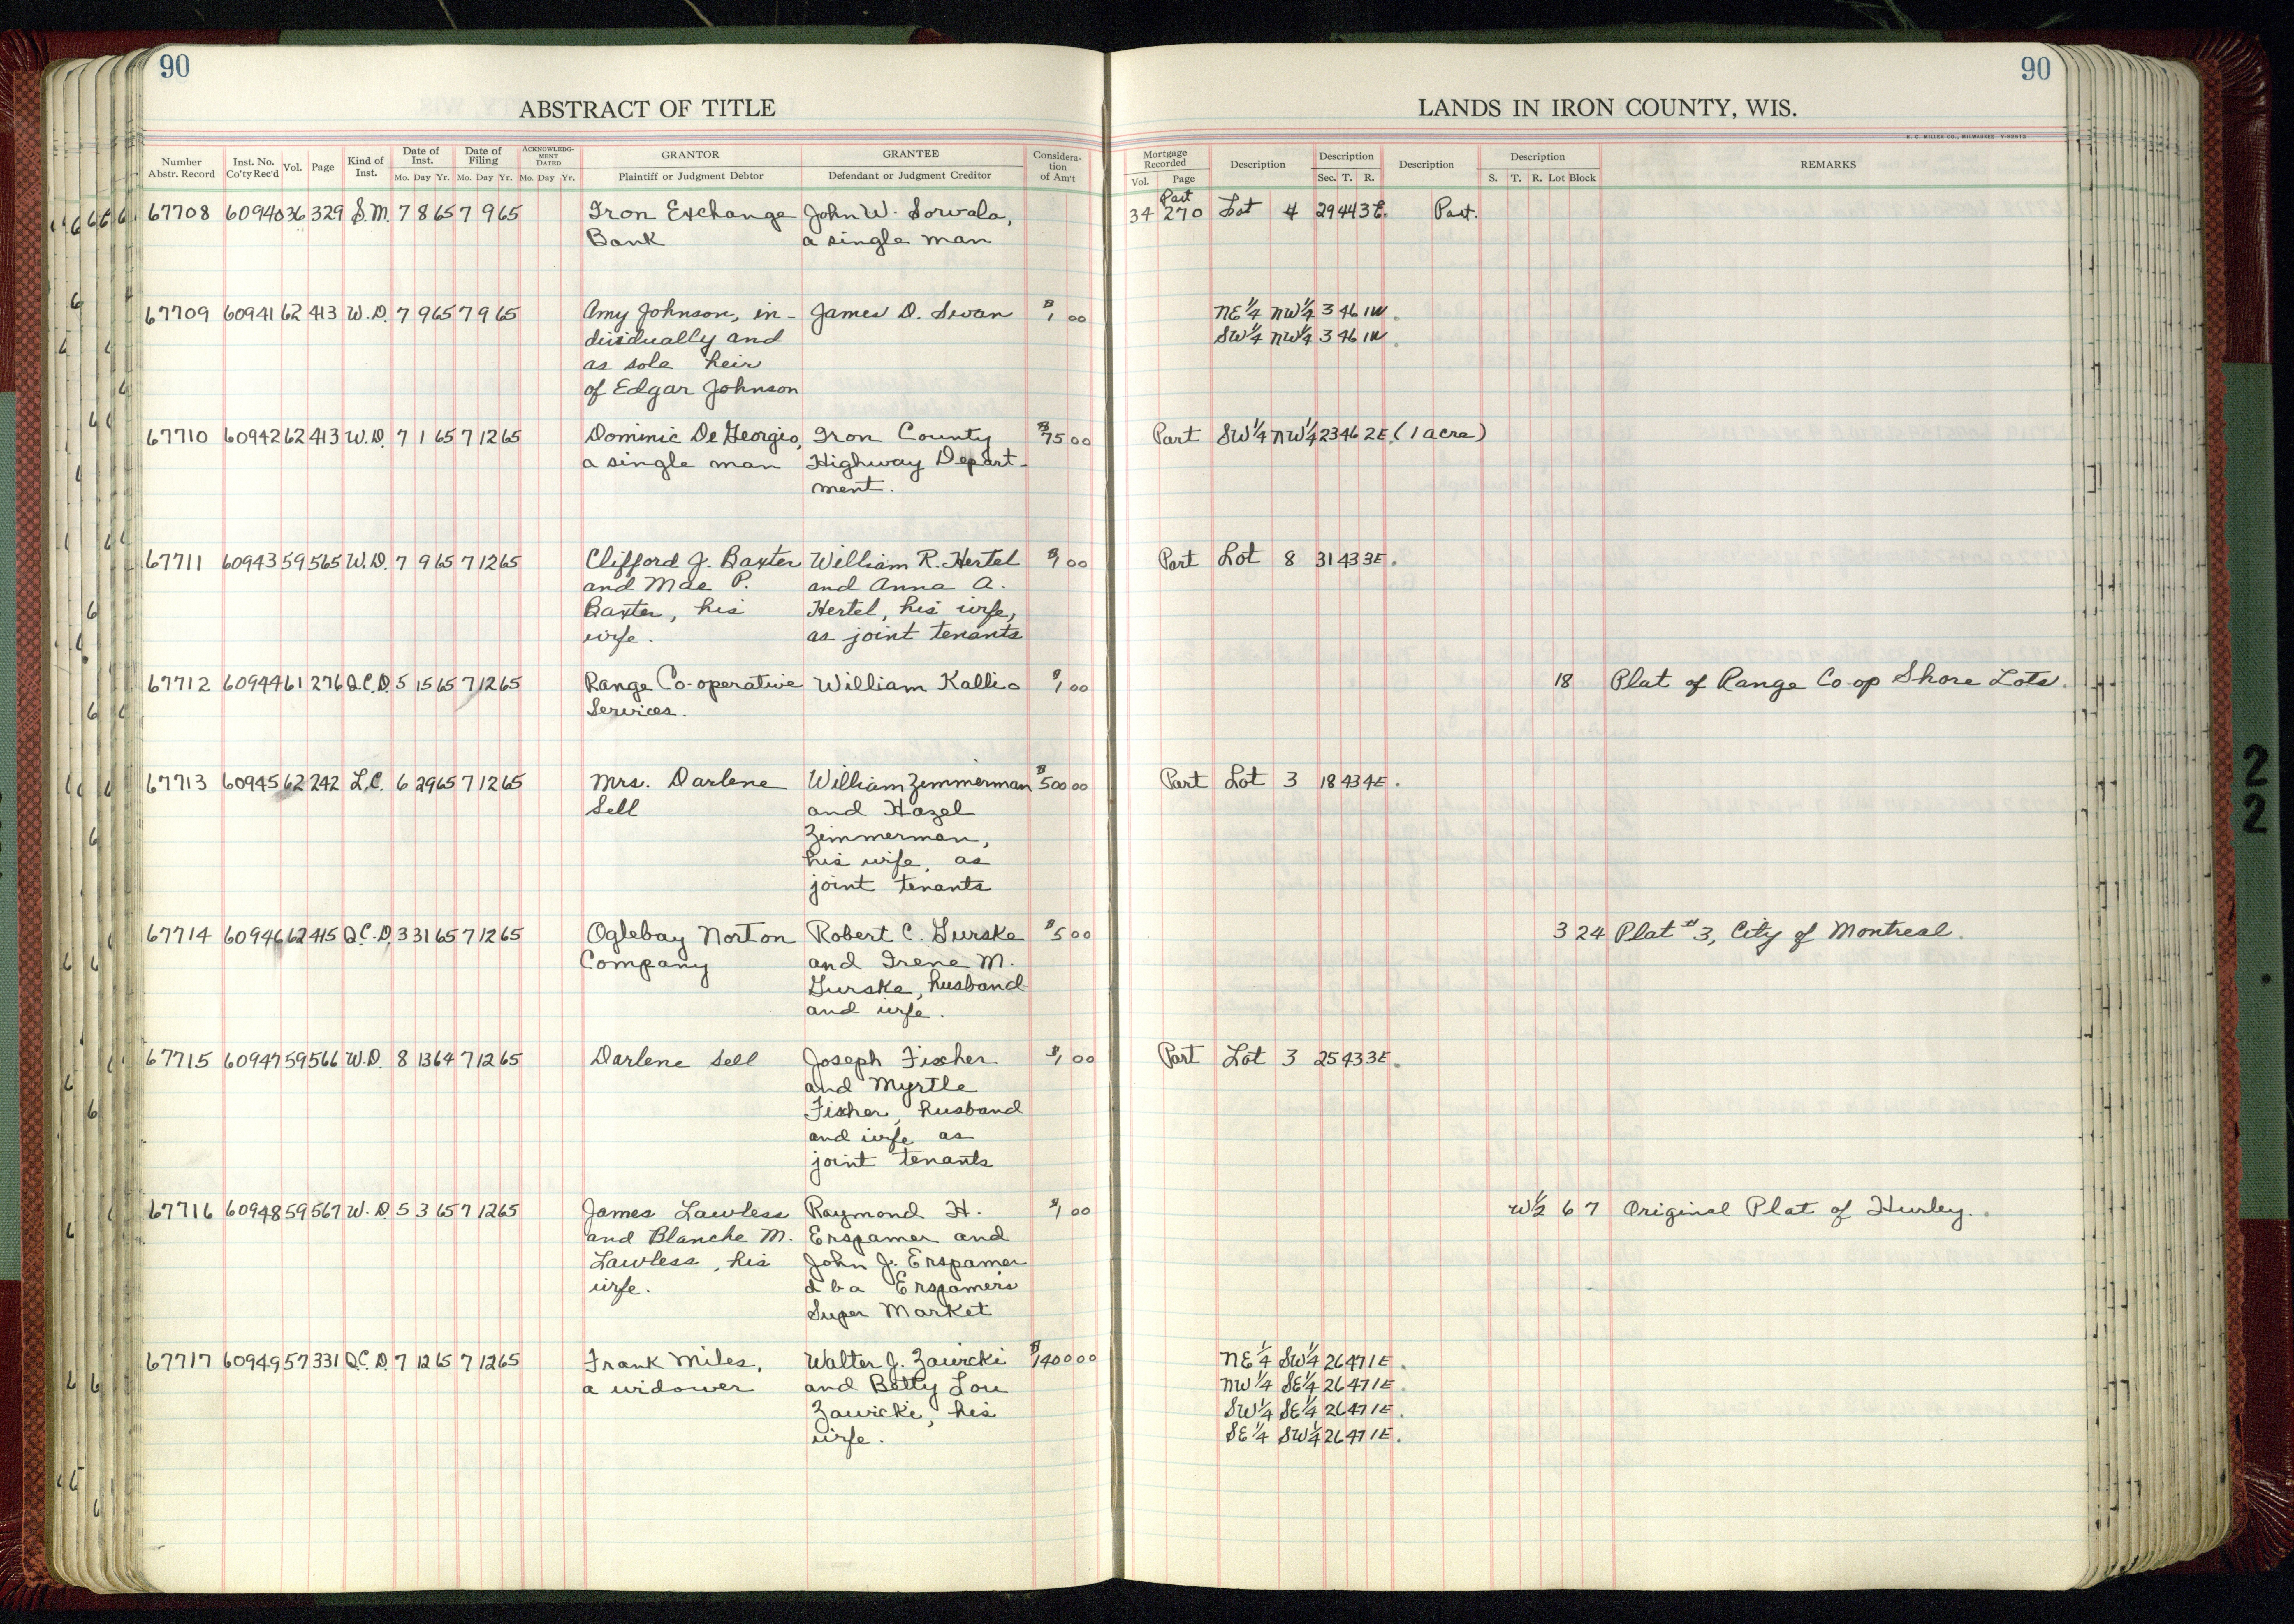 90
90
ABSTRACT OF TITLE
LANDS IN IRON COUNTY, WIS.
H. C. MILLER CO., MILWAUKEE
Number Abstr. Record Inst. No. Co'ty Rec'd Vol. Page Kind of Inst. Date of Inst. Mo. Day Yr. Date of Filing Mo. Day Yr. ACKNOWLEDGMENT DATED Mo. Day Yr. GRANTOR Plaintiff or Judgment Debtor GRANTEE Defendant or Judgment Creditor Consideration of Am't
Mortgage Recorded Vol. Page Description Description Sec. T. R. Description Description S. T. R. Lot Block REMARKS
67708 60940 36 329 S.M. 7 8 65 7 9 65 Iron Exchange John W. Sorvala, 34 Part 270 Lot 4 29 44 3E. Part.
Bank a single man
67709 60941 62 413 W.D. 7 9 65 7 9 65 Amy Johnson, in- James D. Swan $1 00 NE¼ NW¼ 3 46 1W.
dividually and SW¼ NW¼ 3 46 1W.
as sole heir
of Edgar Johnson
67710 60942 62 413 W.D. 7 1 65 7 12 65 Dominic De Georgio, Iron County $75 00 Part SW¼ NW¼ 23 46 2E. (1 acre)
a single man Highway Depart-
ment.
67711 60943 59 565 W.D. 7 9 65 7 12 65 Clifford J. Baxter William R. Hertel $1 00 Part Lot 8 31 43 3E.
and Mae P. and Anna A.
Baxter, his Hertel, his wife,
wife. as joint tenants
67712 60944 61 276 Q.C.D. 5 15 65 7 12 65 Range Co-operative William Kallio $1 00 18 Plat of Range Co-op Shore Lots.
Services.
67713 60945 62 242 L.C. 6 29 65 7 12 65 Mrs. Darlene William Zimmerman $500 00 Part Lot 3 18 43 4E.
Sell and Hazel
Zimmerman,
his wife, as
joint tenants
67714 60946 62 415 Q.C.D. 3 31 65 7 12 65 Oglebay Norton Robert C. Gurske $5 00 3 24 Plat #3, City of Montreal.
Company and Irene M.
Gurske, husband
and wife.
67715 60947 59 566 W.D. 8 13 64 7 12 65 Darlene Sell Joseph Fischer $1 00 Part Lot 3 25 43 3E.
and Myrtle
Fischer, husband
and wife as
joint tenants
67716 60948 59 567 W.D. 5 3 65 7 12 65 James Lawless Raymond H. $1 00 W½ 6 7 Original Plat of Hurley.
and Blanche M. Erspamer and
Lawless, his John J. Erspamer
wife. d b a Erspamers
Super Market
67717 60949 57 331 Q.C.D. 7 12 65 7 12 65 Frank Miles, Walter J. Zawicki $1400 00 NE¼ SW¼ 26 47 1E.
a widower and Betty Lou NW¼ SE¼ 26 47 1E.
Zawicki, his SW¼ SE¼ 26 47 1E.
wife. SE¼ SW¼ 26 47 1E.
2
2